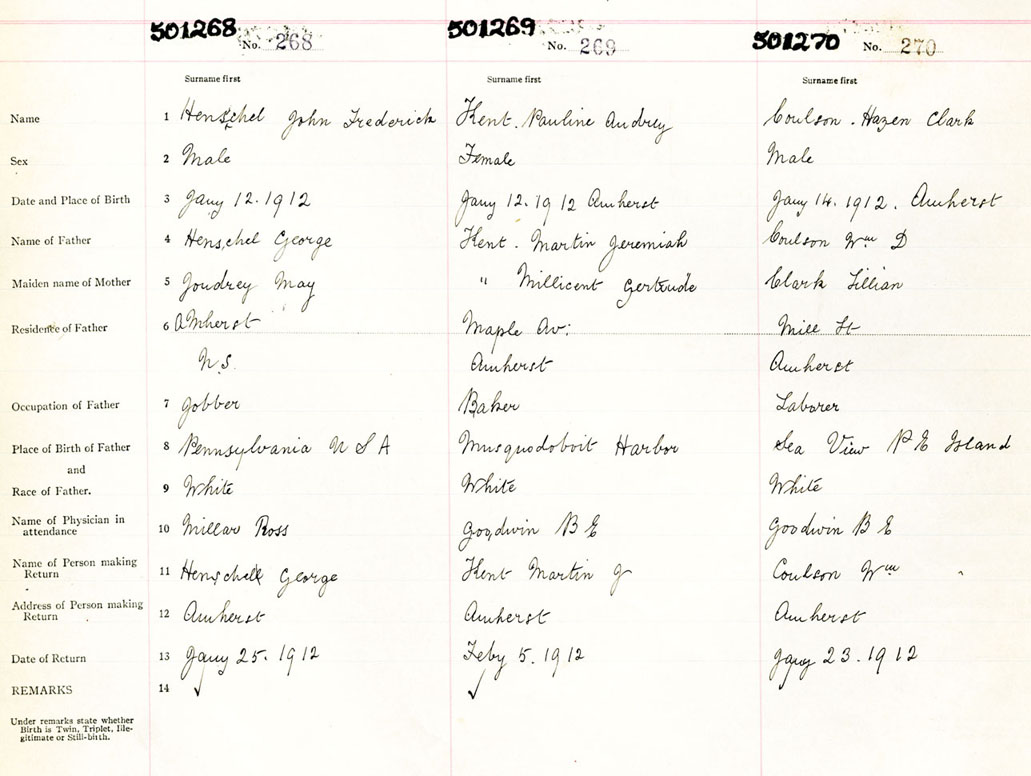 501268 No. 268 501269 No. 269 501270 No. 270
Surname first Surname first Surname first
Name 1 Henschel John Frederick Kent. Pauline Audrey Coulson. Hazen Clark
Sex 2 Male Female Male
Date and Place of Birth 3 Jany 12. 1912 Jany 12. 1912 Amherst Jany 14. 1912. Amherst
Name of Father 4 Henschel George Kent. Martin Jeremiah Coulson Wm D
Maiden name of Mother 5 Joudrey May " Millicent Gertrude Clark Lillian
Residence of Father 6 Amherst Maple Av: Mill St
N.S. Amherst Amherst
Occupation of Father 7 Jobber Baker Laborer
Place of Birth of Father 8 Pennsylvania U S A Musquodoboit Harbor Sea View P E Island
and
Race of Father. 9 White White White
Name of Physician in attendance 10 Millar Ross Goodwin B E Goodwin B E
Name of Person making Return 11 Henschell George Kent Martin J Coulson Wm
Address of Person making Return 12 Amherst Amherst Amherst
Date of Return 13 Jany 25. 1912 Feby 5. 1912 Jany 23. 1912
REMARKS 14 ✓ ✓
Under remarks state whether
Birth is Twin, Triplet, Ille-
gitimate or Still-birth.